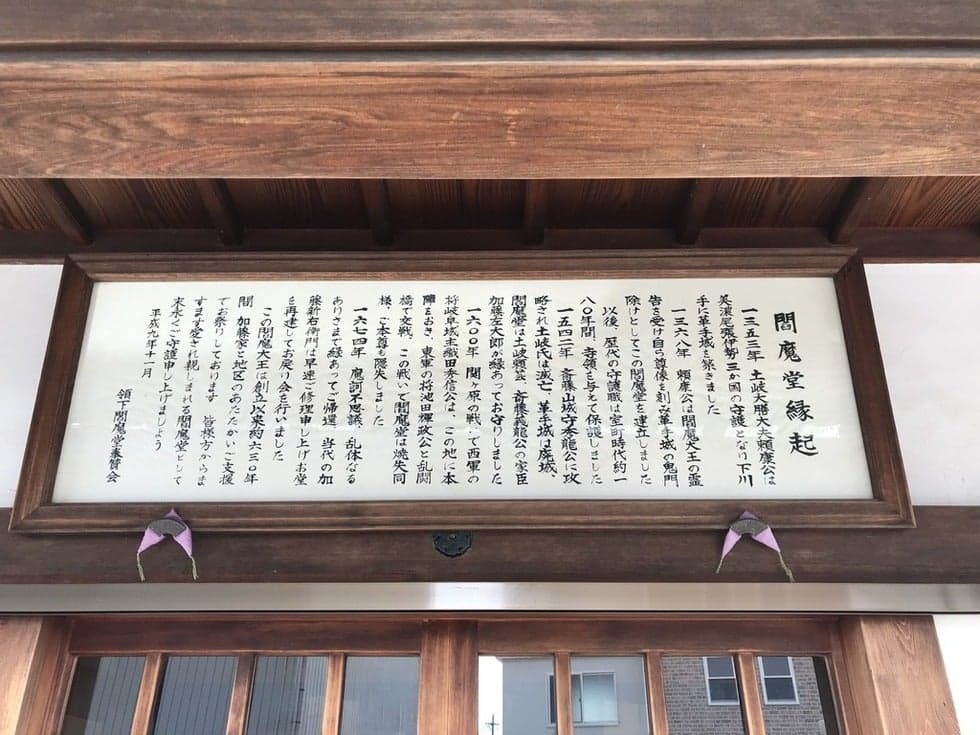 閻魔堂縁起
一三五三年　土岐大膳大夫頼康公は
美濃尾張伊勢三か国の守護となり下川
手に革手城を築きました
一三六八年　頼康公は閻魔大王の霊
告を受け自ら尊像を刻み革手城の鬼門
除けとしてこの閻魔堂を建立しました
以後、歴代の守護職は室町時代約一
八〇年間、寺領を与えて保護しました
一五四二年　斎藤山城守秀龍公に攻
略され土岐氏は滅亡、革手城は廃城、
閻魔堂は土岐頼芸、斎藤義龍公の家臣
加藤左太郎が縁あってお守りしました
一六〇〇年　関ヶ原の戦いで西軍の
将岐阜城主織田秀信公は、この地に本
陣をおき、東軍の将池田輝政公と乱闘
橋で交戦、この戦いで閻魔堂は焼失同
様、ご本尊も隠失しました
一六七四年　魔訶不思議、乱体なる
ありさまで縁あってご帰還、当代の加
藤新右衛門は早速ご修理申し上げお堂
を再建してお戻り会を行いました
この閻魔大王は創立以来約六三〇年
間　加藤家と地区のあたたかいご支援
でお祭りしております　皆様方からま
すます愛され親しまれる閻魔堂として
末永くご守護申し上げましょう
平成九年十一月
領下閻魔堂奉賛会